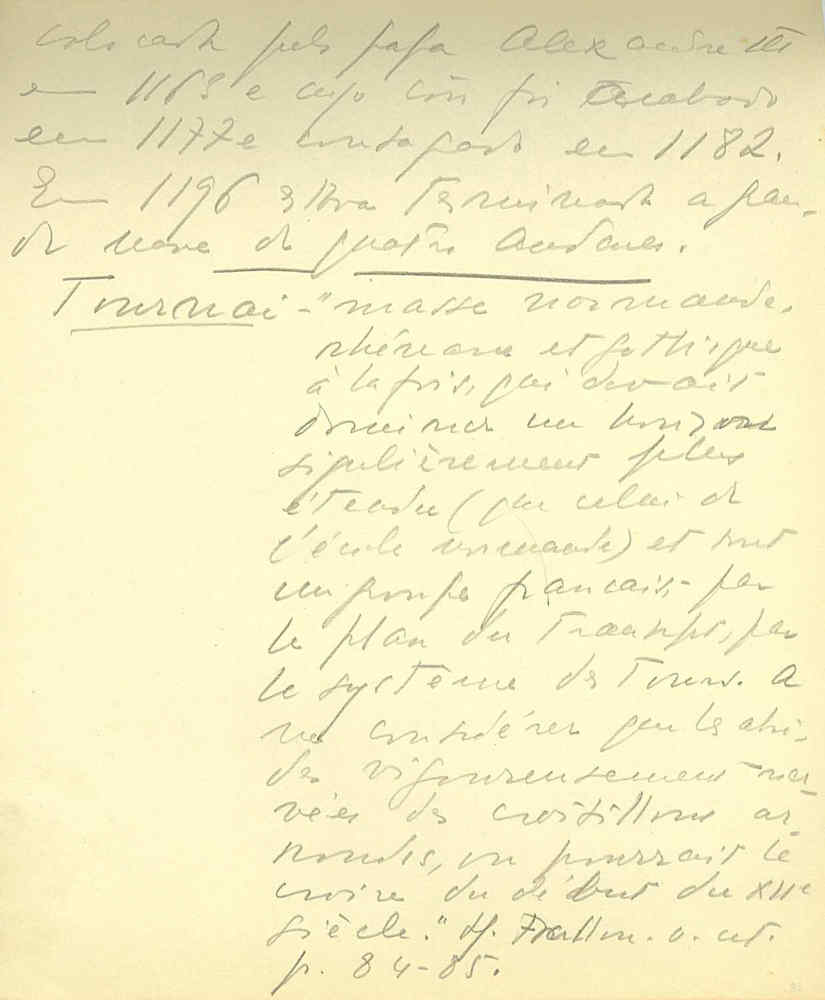 colocada pelo papa Alexandre III
em 1163 e cujo côro foi acabado
em 1177 e consagrado em 1182.
Em 1196 estava terminada a gran-
de nave de quatro andares.
Tournai - "masse normande,
rhénane et gothique
à la fois, qui devait
dominer un horizon
singulièrement plus
étendu (que celui de
l'école normande) et dont
un groupe français - par
le plan du transept, par
le système des tours. A
ne considérer que les absi-
des vigoureusement ner-
vées des croisillons ar-
rondis, on pourrait le
croire du début du XIIe
siècle." H. Focillon. o. cit.
p. 84-85.